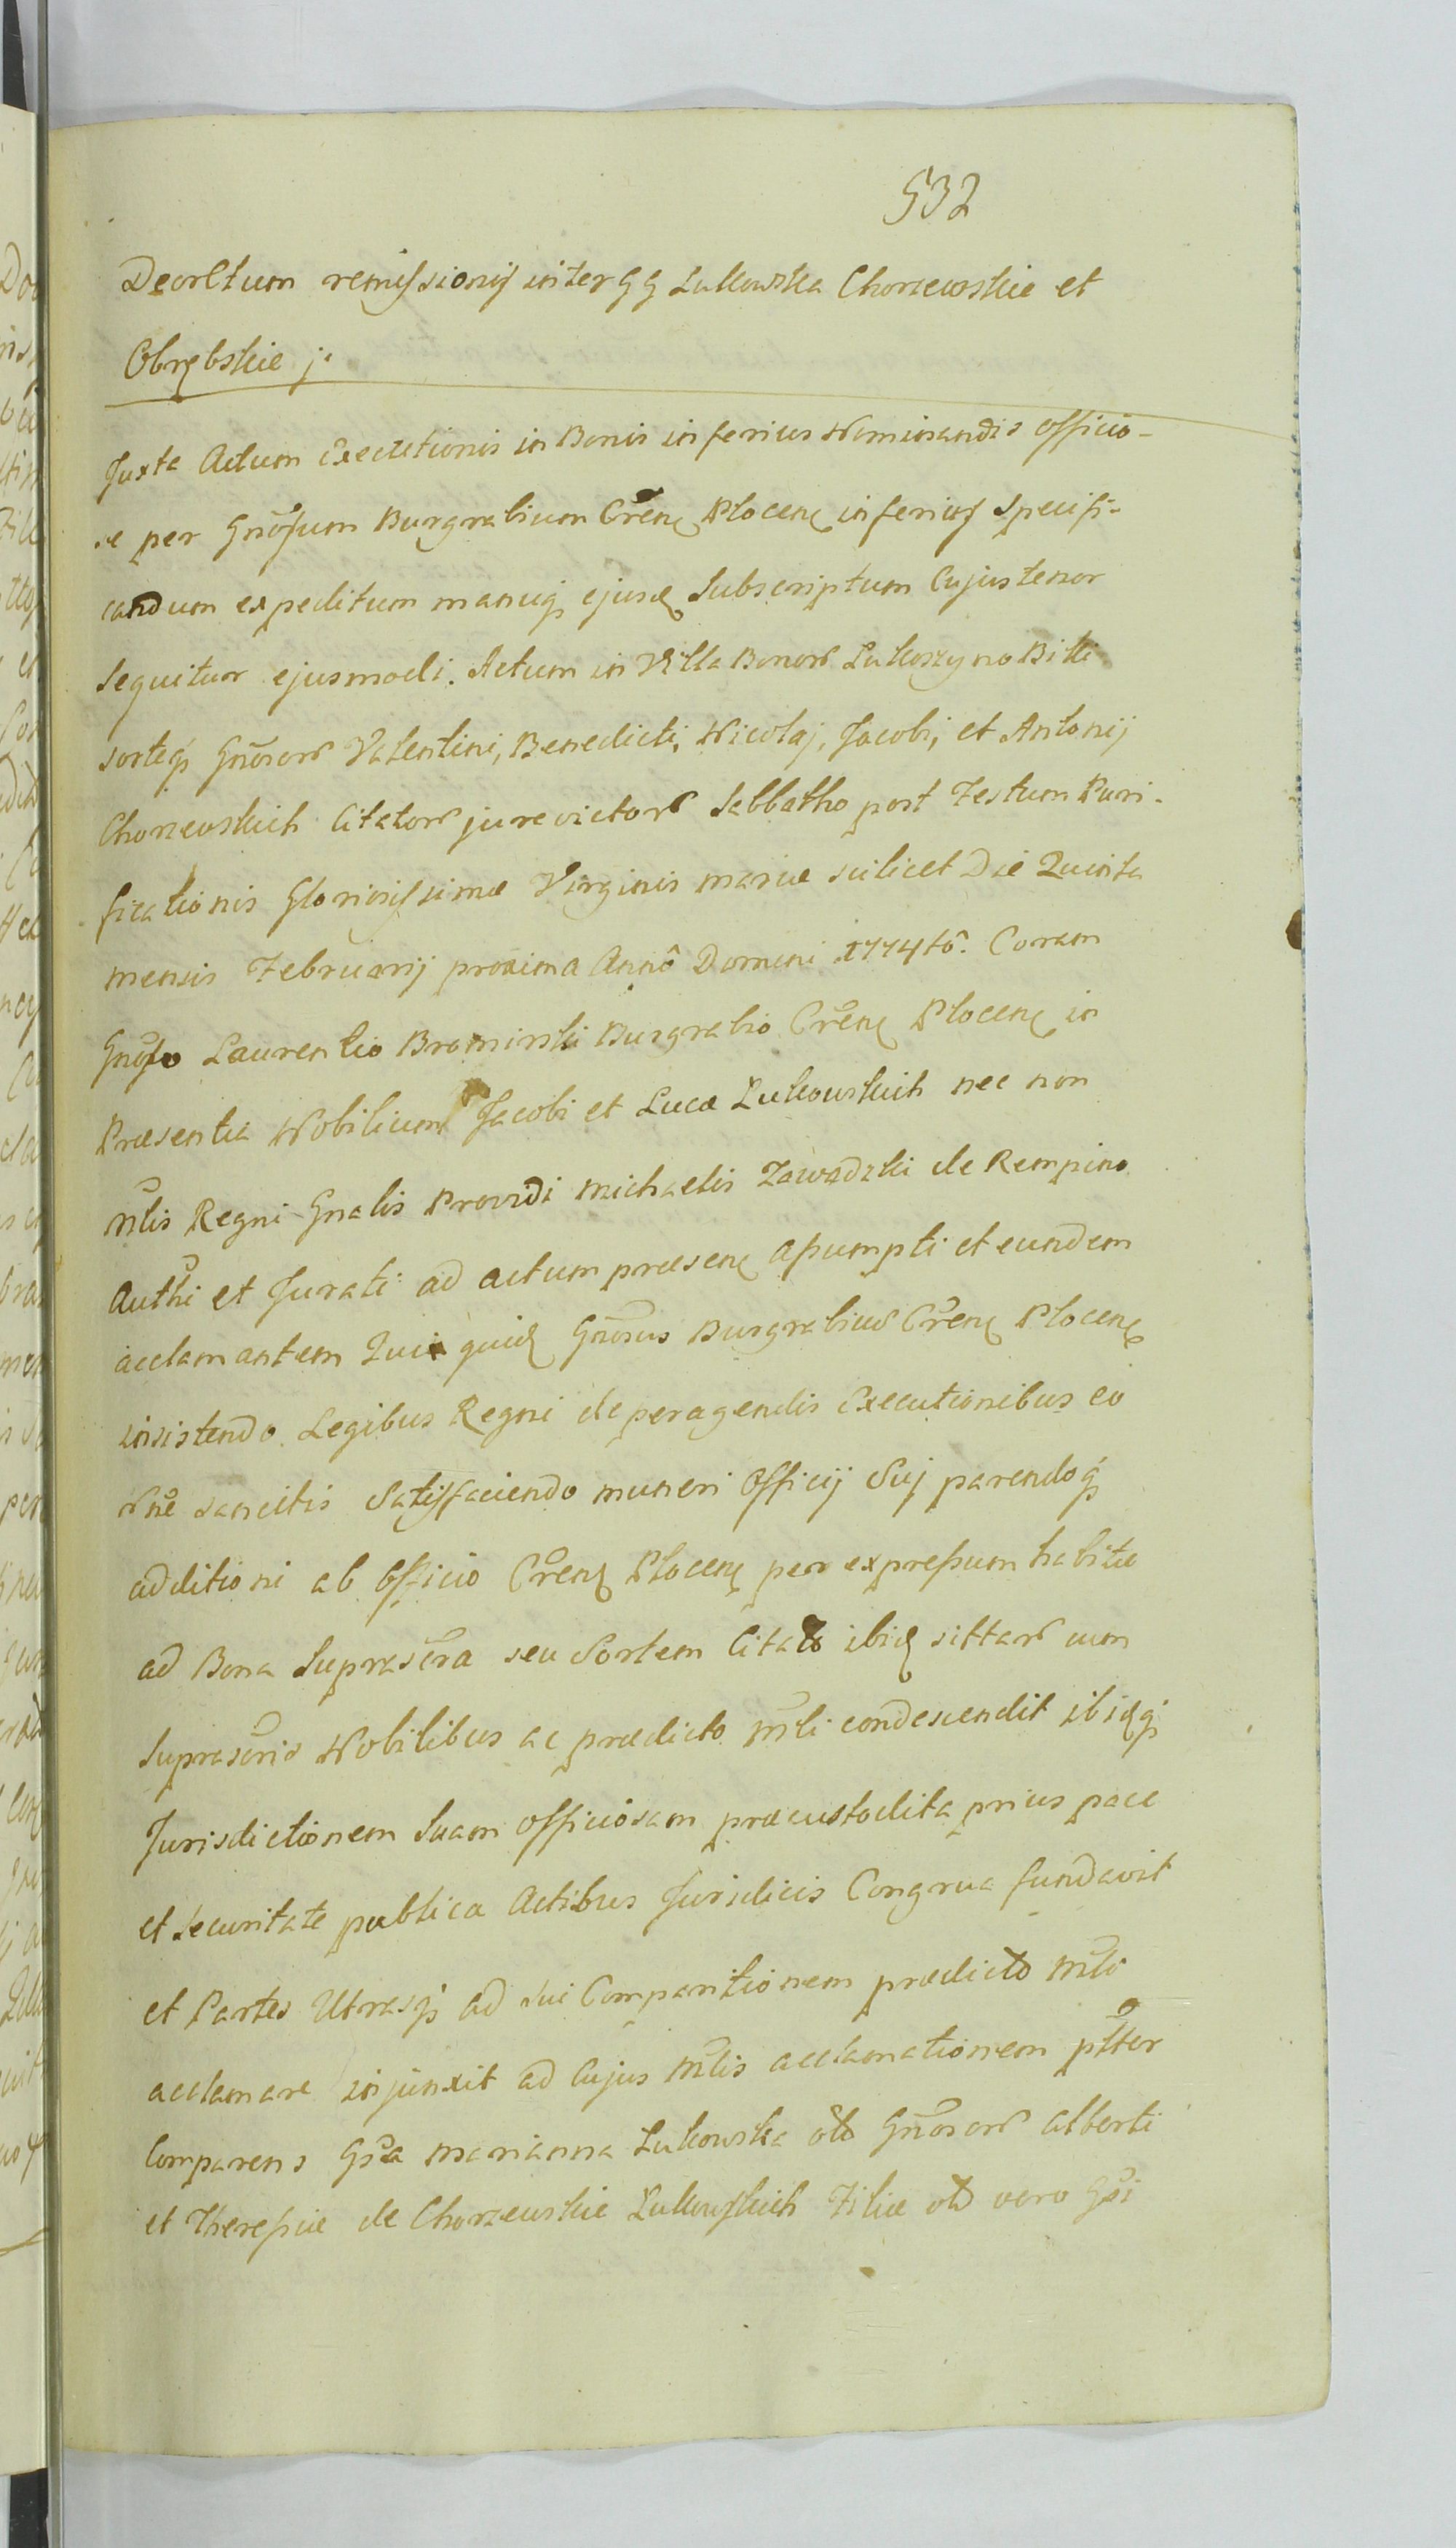 532
Decretum remissionis inter GG Lukowska Chorzewskie et
Obrębskie j.
Juxta Actum Executionis in Bonis inferius Nominandis officio-
se per Gnōsum Burgrabium Crēn Plocen inferius Specifi-
candum expeditum manuq ejusd Subscriptum Cujus tenor
Sequitur ejusmodi. Actum in Villa Bonor Lukoszyno Biki
Sorteq Gnōsor Valentini, Benedicti, Nicolaj, Jacobi, et Antonij
Chorzewskich Citator jurevictor Sabbatho post Festum Puri-
ficationis Gloriosissimæ Virginis mariæ scilicet Die Quinta
mensis Februarij proxima Annô Domini 1774tô. Coram
Gnōso Laurentio Brominski Burgrabio Crēn Plocen in
Præsentia Nobilium Jacobi et Lucæ Lukowskich nec non
Mlis Regni Gnalis Providi Michaelis Zawadzki de Rempino
Authi et Jurati ad actum præsen assumpti et eundem
acclamantem Qui quid Gnōsus Burgrabius Crēn Plocen
insistendo Legibus Regni de peragendis Executionibus eo
rne sancitis Satisfaciendo muneri Officij Suj parendoq
additioni ab Officio Crēn Plocen per expressum habitæ
ad Bona Suprascra seu Sortem Citato ibid sittar cum
Suprascris Nobilibus ac prædicto Mli condescendit ibidq
Jurisdictionem Suam officiosam præcustodita prius pace
et Securitate publica Actibus Juridicis Congrua fundavit
et Partes Utrasq ad sui Comparitionem prædicto Mli
acclamare injunxit ad Cujus Mlis acclamationem pltter
Comparens Gsa Marianna Lukowska olo Gnōsor Alberti
et Theressiæ de Chorzewskie Lukowskich Filia olo vero Gsi